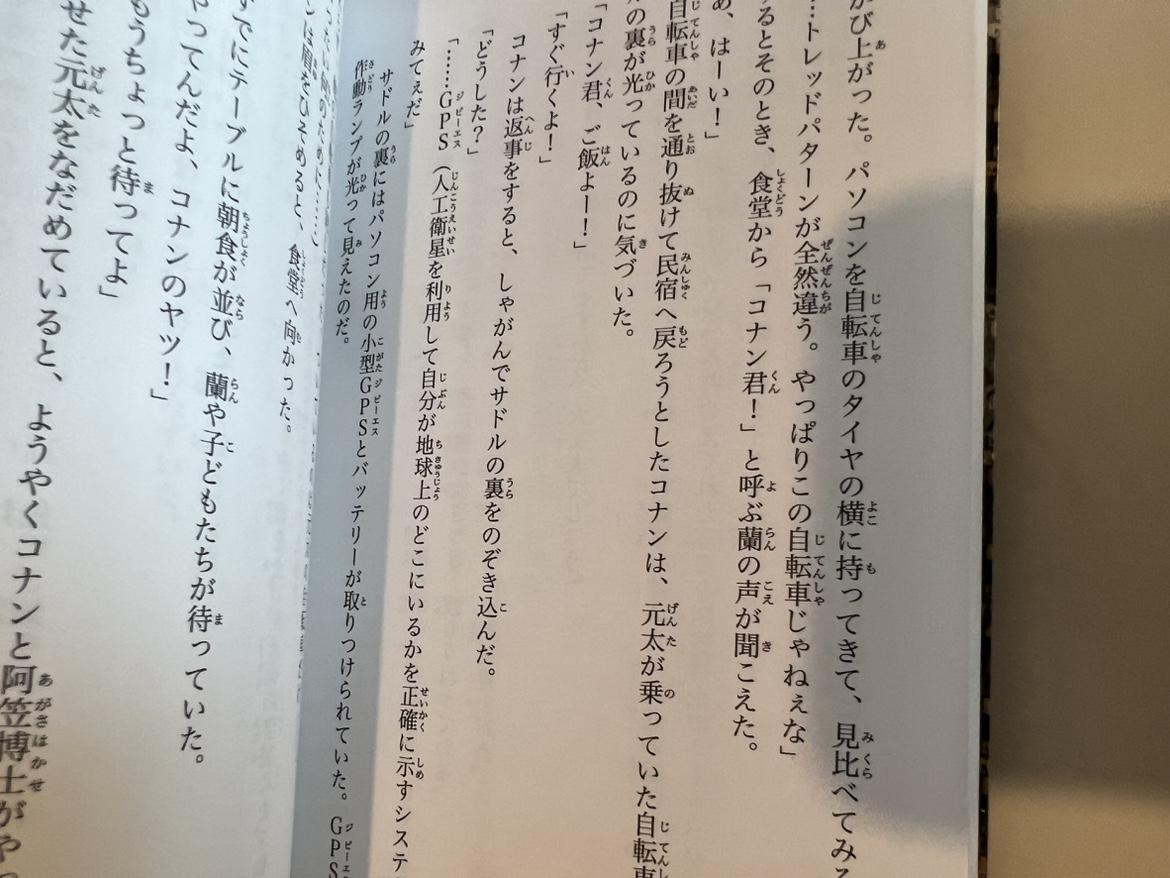 がび上がった。パソコンを自転車のタイヤの横に持ってきて、見比べてみる
…トレッドパターンが全然違う。やっぱりこの自転車じゃねぇな」
るとそのとき、食堂から「コナン君！」と呼ぶ蘭の声が聞こえた。
あ、はーい！」
自転車の間を通り抜けて民宿へ戻ろうとしたコナンは、元太が乗っていた自転車
ルの裏が光っているのに気づいた。
「コナン君、ご飯よー！」
「すぐ行くよ！」
コナンは返事をすると、しゃがんでサドルの裏をのぞき込んだ。
「どうした？」
「……GPS（人工衛星を利用して自分が地球上のどこにいるかを正確に示すシステ
みてぇだ」
サドルの裏にはパソコン用の小型GPSとバッテリーが取りつけられていた。GPS
作動ランプが光って見えたのだ。
ンは眉をひそめると、食堂へ向かった。
でにテーブルに朝食が並び、蘭や子どもたちが待っていた。
やってんだよ、コナンのヤツ！」
もうちょっと待ってよ」
せた元太をなだめていると、ようやくコナンと阿笠博士がや